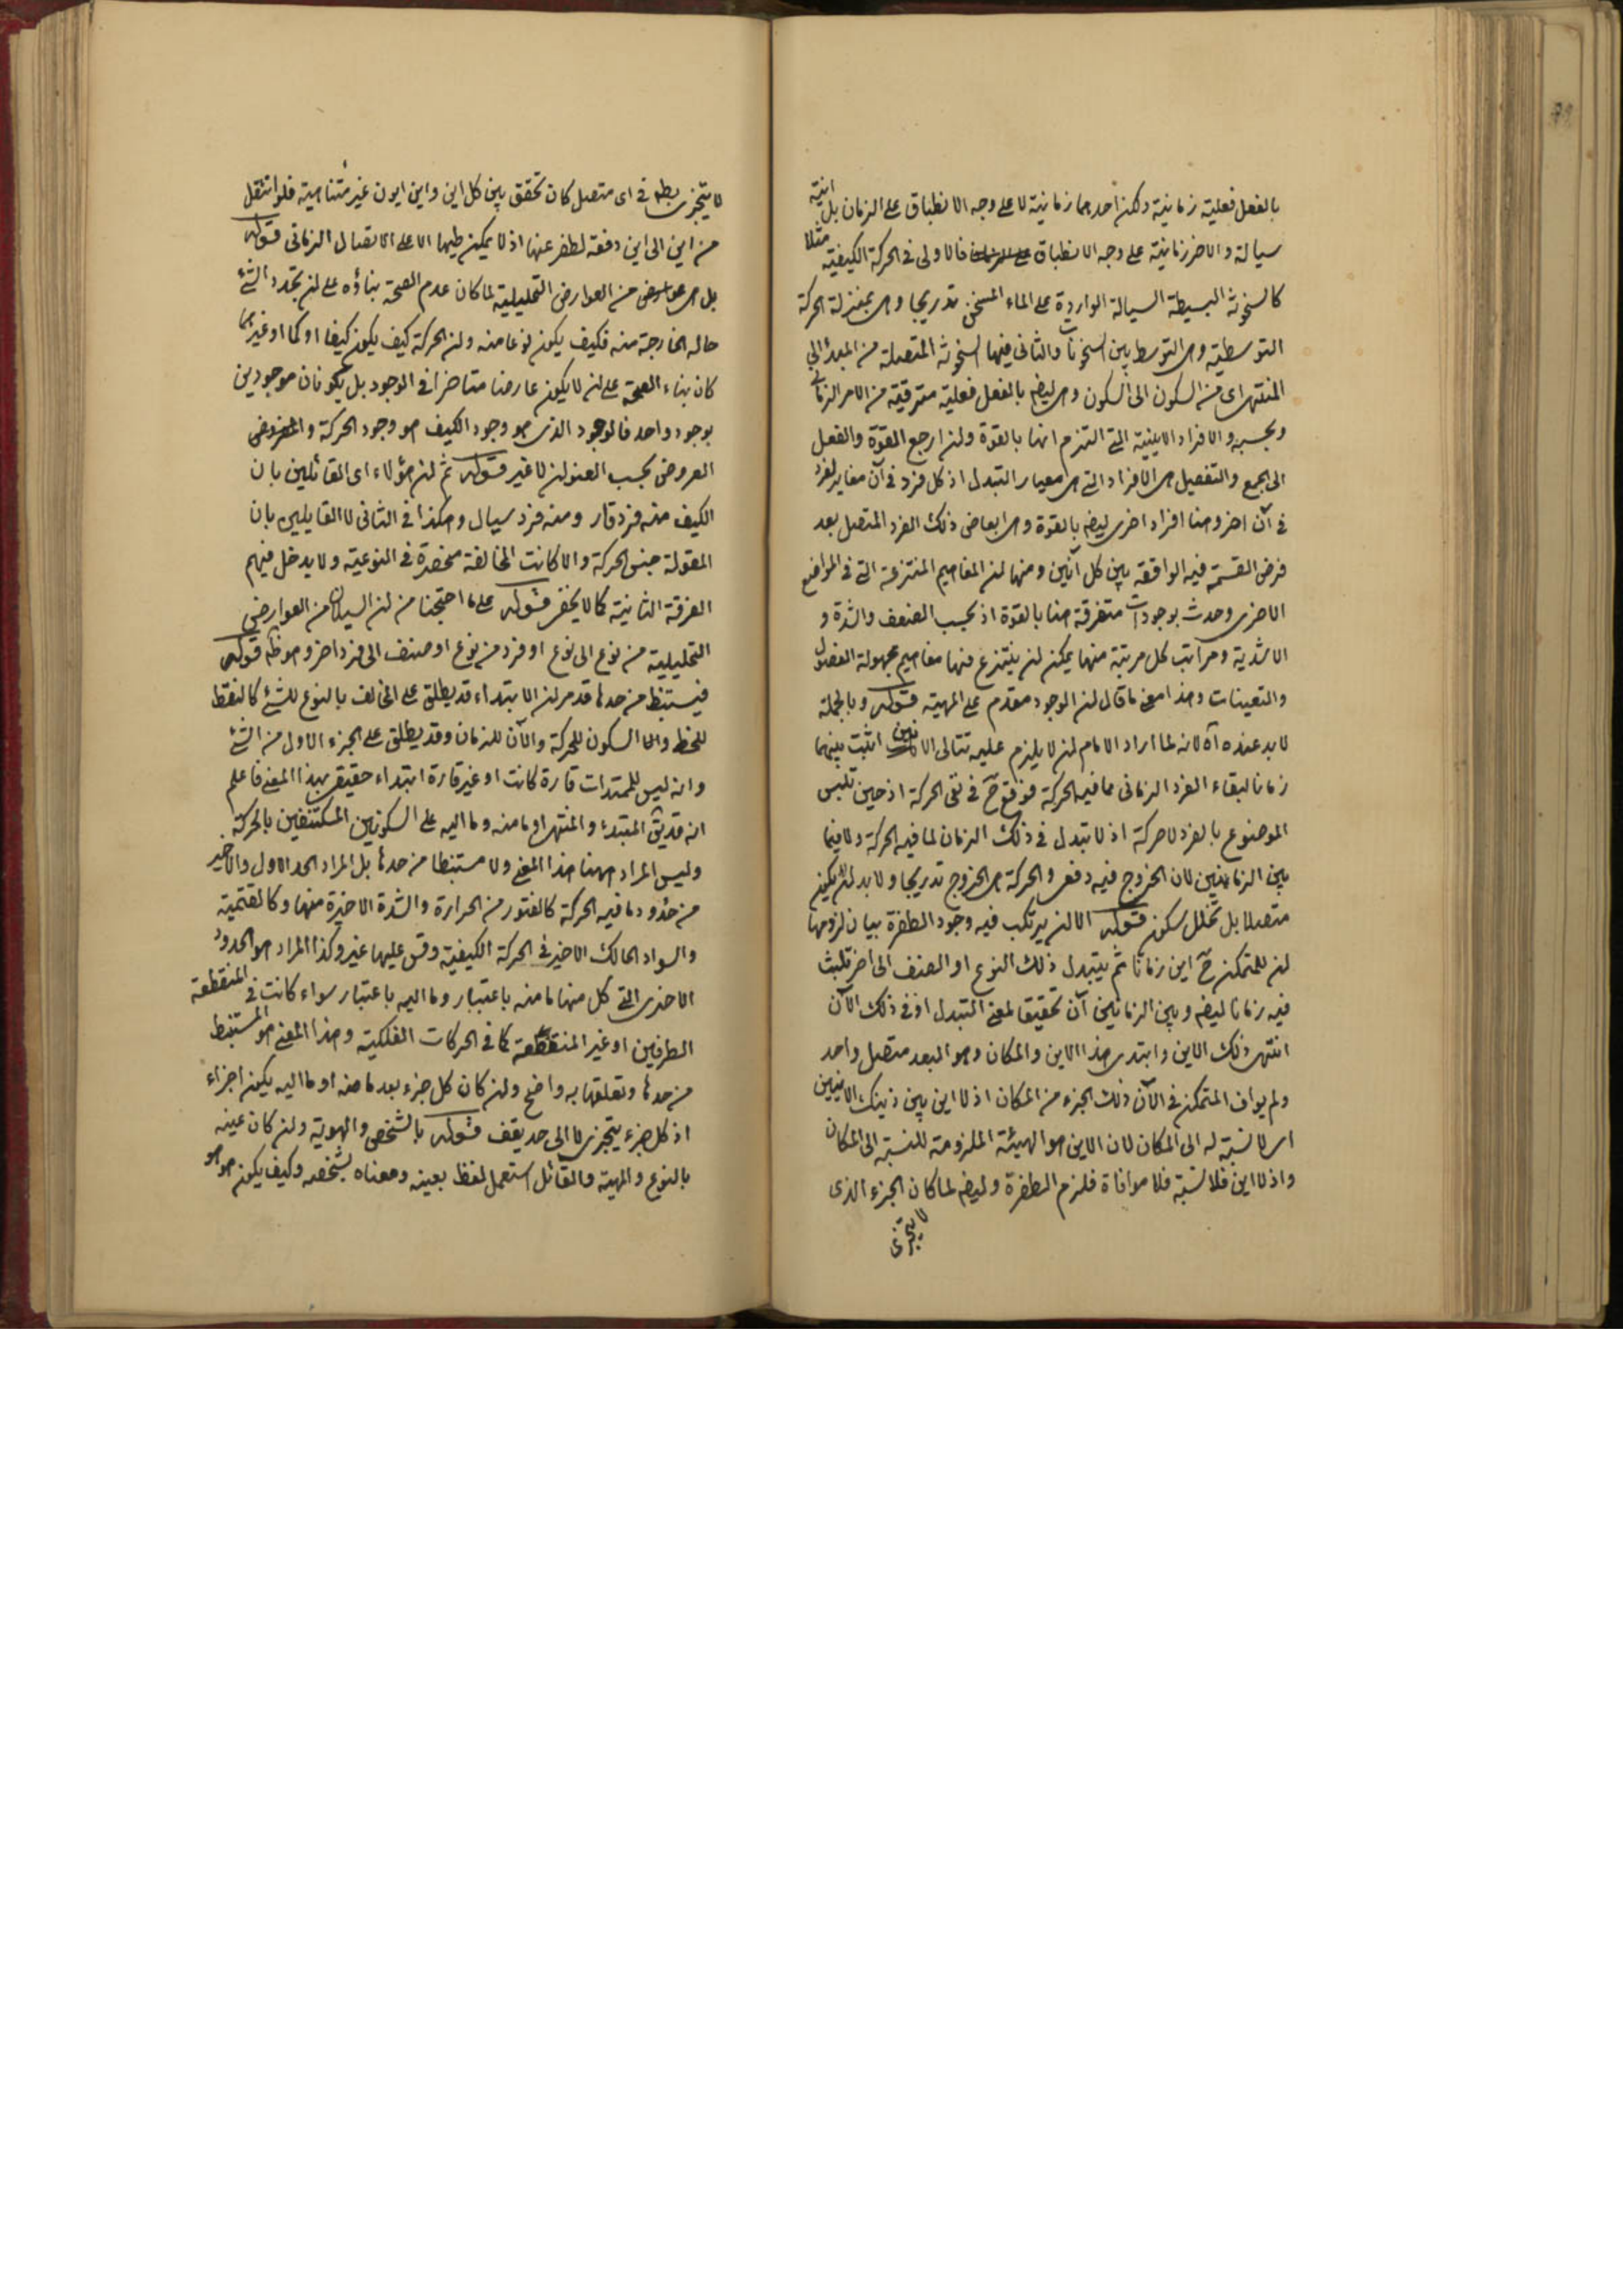 بالفعل فعلية زمانية ولكن احدهما زمانية لا على وجه الانطباق على الزمان بل انية
سيالة والاخر زمانية على وجه الانطباق فالاولى فى الحركة الكيفية مثلا
كالسخونة البسيطة السيالة الواردة على الماء المسخن تدريجا وهى بمنزلة الحركة
التوسطية وهى التوسط بين السخونات والثانى فيها السخونة المتصلة من المبدء الى
المنتهى اى من السكون الى السكون وهى ايضا بالفعل فعلية مترقية من الامر الزمانى
وبحسبه والافراد الاينية التى التزم انها بالقوة وان ارجع القوة والفعل
الى الجمع والتفصيل هى الافراد التى هى معيار التبدل اذ كل فرد فى آن مغاير لفرد
فى آن اخر وهنا افراد اخرى ايضا بالقوة وهى ابعاض ذلك الفرد المتصل بعد
فرض القسمة فيه الواقعة بين كل آنين ومنها ان المفاهيم المنتزعة التى فى المواضع
الاخرى وجدت بوجودات متفرقة هنا بالقوة اذ بحسب الضعف والشدة و
الاشدية ومراتب كل مرتبة منها يمكن ان ينتزع منها مفاهيم مجهولة الفصول
والتعينات وهذا معنى ما قال ان الوجود مقدم على المهية قوله وبالجملة
لابد عنده آه لانه لما اراد الامام ان لا يلزم عليه تتالى الانين اثبت بينهما
زمانا لبقاء الفرد الزمانى مما فيه الحركة فوقع ح فى نفى الحركة اذ حين تلبس
الموضوع بالفرد لا حركة اذ لا تبدل فى ذلك الزمان لما فيه الحركة ولا فيما
بين الزمانين لان الخروج فيه دفعى والحركة هى الخروج تدريجا ولابد ان يكون
متصلا بل تخلل سكون قوله الا ان يرتكب فيه وجود الطفرة بيان لزومها
ان للمتمكن ح اين زمانا ثم يتبدل ذلك النوع او الصنف الى اخر تلبث
فيه زمانا ايضا وبين الزمانين آن تحقيقا لمعنى التبدل اذ فى ذلك الآن
انتهى ذلك الاين وابتدى هذا الاين والمكان وهو البعد متصل واحد
ولم يواف المتمكن فى الآن ذلك الجزء من المكان اذ لا اين بين ذينك الاينين
اى لا نسبة له الى المكان لان الاين هو الهيئة الملزومة للنسبة الى المكان
واذ لا اين فلا نسبة فلا موافاة فلزم الطفرة وايضا لما كان الجزء الذى
لا يتجزى
لا يتجزى بط فى اى متصل كان تحقق بين كل اين واين ايون غير متناهية فلو انتقل
من اين الى اين دفعة لطفر عنها اذ لا يمكن طيها الا على الاتصال الزمانى قوله
بل هى عوارض من العوارض التحليلية لما كان عدم الصحة بناؤه على ان تجدد الشئ
حاله الخارجة منه فكيف يكون نوعا منه وان الحركة كيف يكون كيفا او كما او غيرهما
كان بناء الصحة على ان لا يكون عارضا متاخرا فى الوجود بل يكونان موجودين
بوجود واحد فالوجود الذى هو وجود الكيف هو وجود الحركة والمفروض
العروض بحسب العنوان لا غير قوله ثم ان هؤلاء اى القائلين بان
الكيف منه فرد قار ومنه فرد سيال وهكذا فى الثانى لا القايلين بان
المقولة جنس الحركة والا كانت المخالفة منحصرة فى النوعية ولا يدخل فيهم
الفرقة الثانية كما لا يخفى قوله على ما احتججنا من ان السيلان من العوارض
التحليلية من نوع الى نوع او فرد من نوع او صنف الى فرد اخر وهو ظ قوله
فيستنبط من حدها قد مر ان الابتداء قد يطلق على المخالف بالنوع للشئ كالنقطة
للخط والا السكون للحركة والآن للزمان وقد يطلق على الجزء الاول من الشئ
وانه ليس للممتدات قارة كانت او غير قارة ابتداء حقيقى بهذا المعنى فاعلم
انه قد يق المبتدء والمنتهى او ما منه وما اليه على السكونين المكتنفين بالحركة
وليس المراد ههنا هذا المعنى ولا مستنبطا من حدها بل المراد الحد الاول والاخير
من حدود ما فيه الحركة كالفتور من الحرارة والشدة الاخيرة منها وكالقتمية
والسواد الحالك الاخير فى الحركة الكيفية وقس عليها غير وكذا المراد هو الحدود
الاخرى التى كل منها ما منه باعتبار وما اليه باعتبار سواء كانت فى المنقطعة
الطرفين او غير المنقطعة كما فى الحركات الفلكية وهذا المعنى هو المستنبط
من حدها وتعلقها به واضح وان كان كل جزء بعد ما منه او ما اليه يكون اجزاء
اذ كل جزء يتجزى لا الى حد يقف قوله بالشخص والهوية وان كان عينه
بالنوع والمهية والقائل استعمل لفظ بعينه ومعناه بشخصه وكيف يكون هو هو